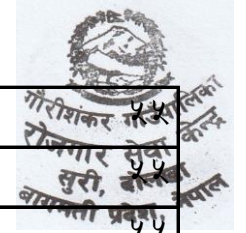 गौरीशंकर गाउँपालिका
रोजगार सेवा केन्द्र
सुरी, दोलखा
बागमती प्रदेश, नेपाल
५५
५५
५५